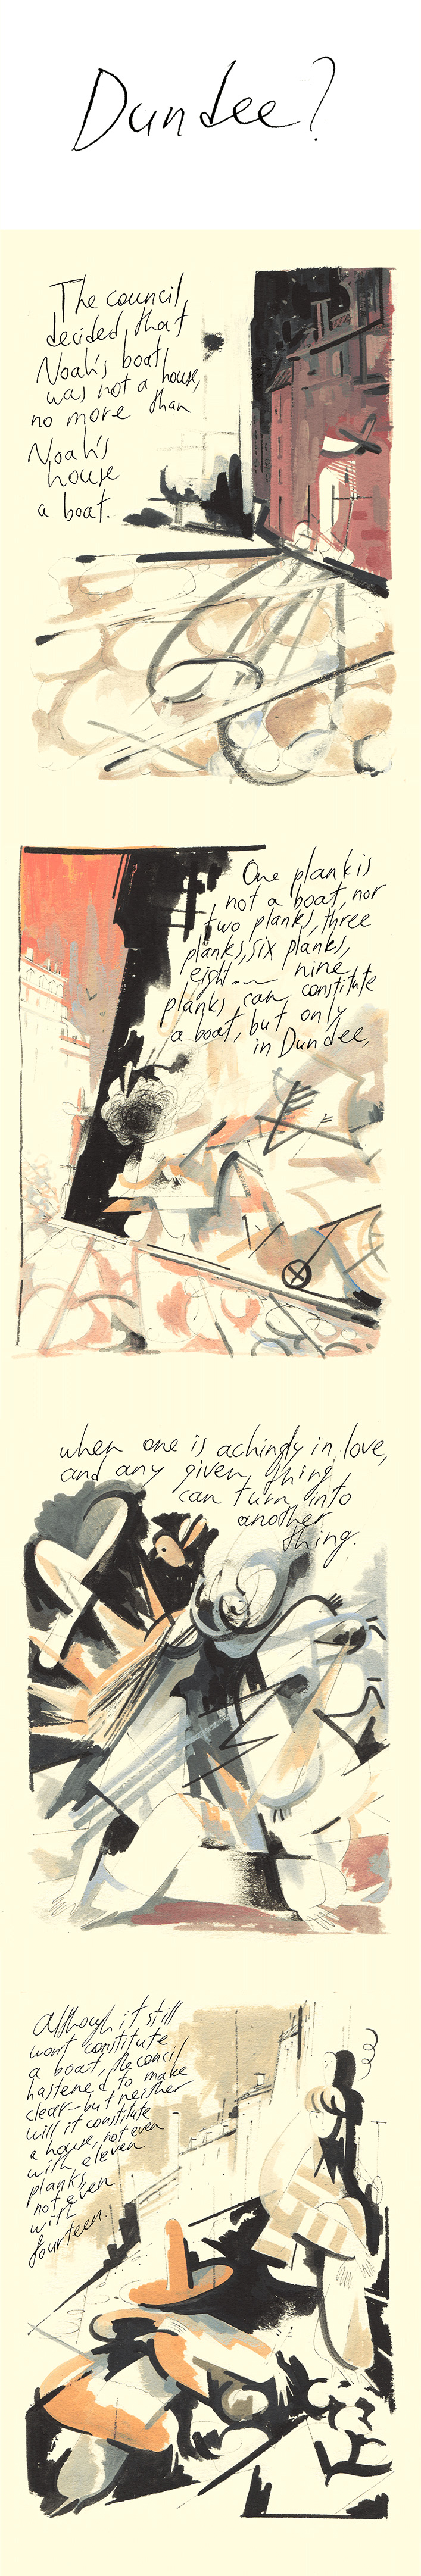 Dundee?
The council
decided that
Noah's boat
was not a house,
no more than
Noah's
house
a boat.
One plank is
not a boat, nor
two planks, three
planks, six planks,
eight... nine
planks can constitute
a boat, but only
in Dundee,
when one is achingly in love,
and any given thing
can turn into
another
thing.
Although it still
wont constitute
a boat, the concil
hastened to make
clear--but neither
will it constitute
a house, not even
with eleven
planks,
not even
with
fourteen.